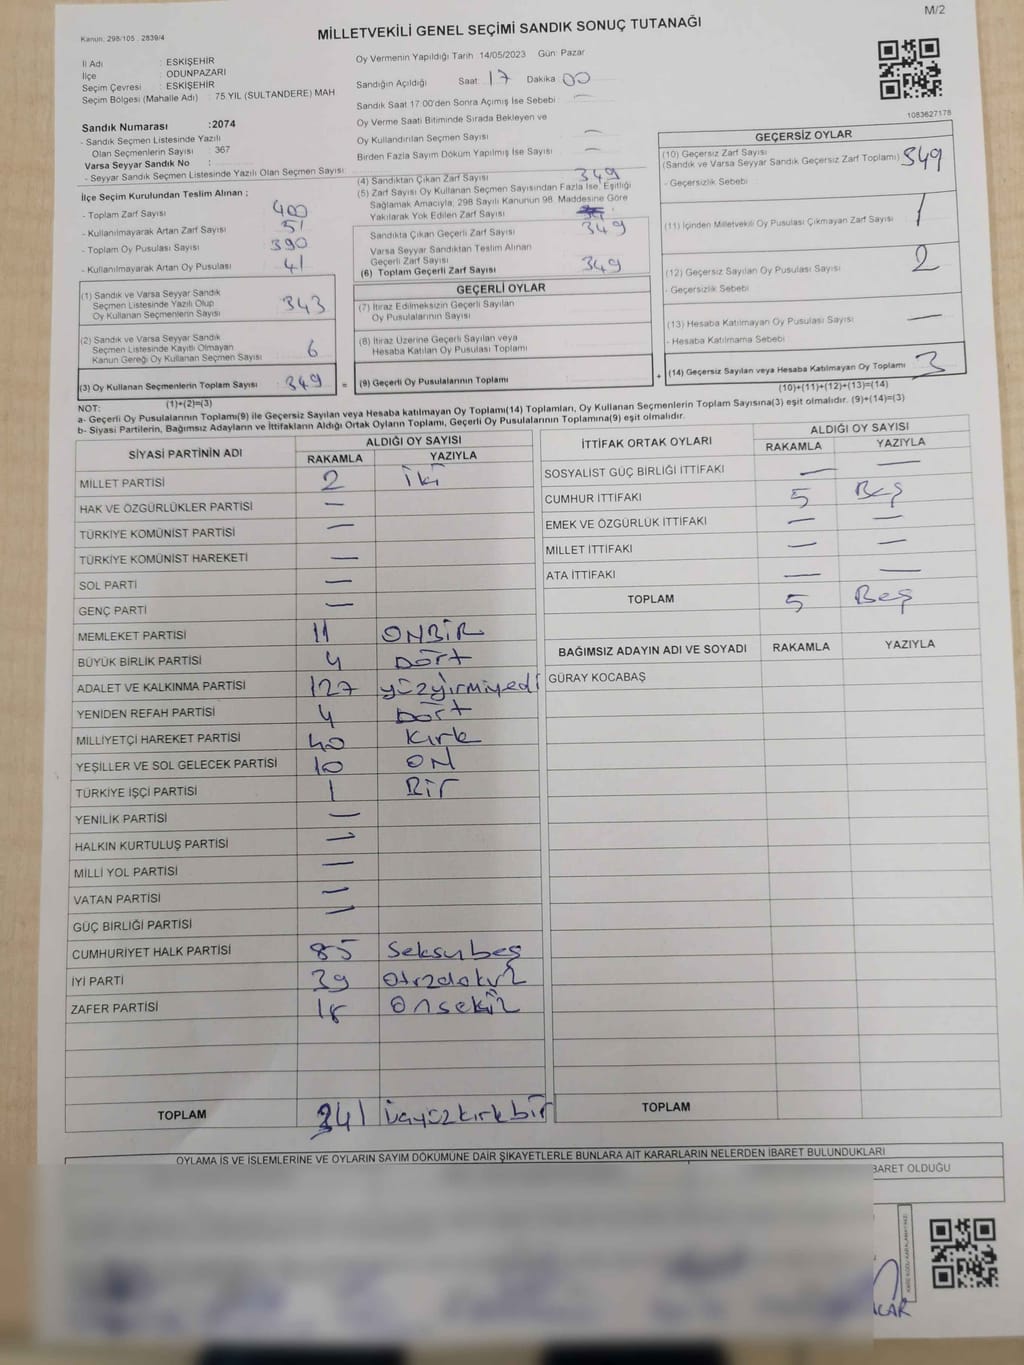 M/2
Kanun. 298/105 . 2839/4
MİLLETVEKİLİ GENEL SEÇİMİ SANDIK SONUÇ TUTANAĞI
İl Adı : ESKİŞEHİR
İlçe : ODUNPAZARI
Seçim Çevresi : ESKİŞEHİR
Seçim Bölgesi (Mahalle Adı) : 75 YIL (SULTANDERE) MAH
Sandık Numarası :2074
- Sandık Seçmen Listesinde Yazılı
Olan Seçmenlerin Sayısı : 367
Varsa Seyyar Sandık No :
- Seyyar Sandık Seçmen Listesinde Yazılı Olan Seçmen Sayısı:
İlçe Seçim Kurulundan Teslim Alınan ;
- Toplam Zarf Sayısı : 400
- Kullanılmayarak Artan Zarf Sayısı : 51
- Toplam Oy Pusulası Sayısı : 390
- Kullanılmayarak Artan Oy Pusulası : 41
(1) Sandık ve Varsa Seyyar Sandık
Seçmen Listesinde Yazılı Olup
Oy Kullanan Seçmenlerin Sayısı : 343
(2) Sandık ve Varsa Seyyar Sandık
Seçmen Listesinde Kayıtlı Olmayan
Kanun Gereği Oy Kullanan Seçmen Sayısı : 6
(3) Oy Kullanan Seçmenlerin Toplam Sayısı : 349
(1)+(2)=(3)
Oy Vermenin Yapıldığı Tarih :14/05/2023 Gün: Pazar
Sandığın Açıldığı Saat: 17 Dakika: 00
Sandık Saat 17:00'den Sonra Açımış İse Sebebi : —
Oy Verme Saati Bitiminde Sırada Bekleyen ve
Oy Kullandırılan Seçmen Sayısı : —
Birden Fazla Sayım Döküm Yapılmış İse Sayısı : —
(4) Sandıktan Çıkan Zarf Sayısı : 349
(5) Zarf Sayısı Oy Kullanan Seçmen Sayısından Fazla İse, Eşitliği
Sağlamak Amacıyla, 298 Sayılı Kanunun 98. Maddesine Göre
Yakılarak Yok Edilen Zarf Sayısı :
Sandıkta Çıkan Geçerli Zarf Sayısı : 349
Varsa Seyyar Sandıktan Teslim Alınan
Geçerli Zarf Sayısı :
(6) Toplam Geçerli Zarf Sayısı : 349
GEÇERLİ OYLAR
(7) İtiraz Edilmeksizin Geçerli Sayılan
Oy Pusulalarının Sayısı :
(8) İtiraz Üzerine Geçerli Sayılan veya
Hesaba Katılan Oy Pusulası Toplamı :
= (9) Geçerli Oy Pusulalarının Toplamı : +
1083627178
GEÇERSİZ OYLAR
(10) Geçersiz Zarf Sayısı
(Sandık ve Varsa Seyyar Sandık Geçersiz Zarf Toplamı) : 349
- Geçersizlik Sebebi
(11) İçinden Milletvekili Oy Pusulası Çıkmayan Zarf Sayısı : 1
(12) Geçersiz Sayılan Oy Pusulası Sayısı : 2
- Geçersizlik Sebebi
(13) Hesaba Katılmayan Oy Pusulası Sayısı : —
- Hesaba Katılmama Sebebi
(14) Geçersiz Sayılan veya Hesaba Katılmayan Oy Toplamı : 3
(10)+(11)+(12)+(13)=(14)
NOT:
a- Geçerli Oy Pusulalarının Toplamı(9) ile Geçersiz Sayılan veya Hesaba katılmayan Oy Toplamı(14) Toplamları, Oy Kullanan Seçmenlerin Toplam Sayısına(3) eşit olmalıdır. (9)+(14)=(3)
b- Siyasi Partilerin, Bağımsız Adayların ve İttifakların Aldığı Ortak Oyların Toplamı, Geçerli Oy Pusulalarının Toplamına(9) eşit olmalıdır.
SİYASİ PARTİNİN ADI ALDIĞI OY SAYISI
RAKAMLA YAZIYLA
MİLLET PARTİSİ 2 iki
HAK VE ÖZGÜRLÜKLER PARTİSİ —
TÜRKİYE KOMÜNİST PARTİSİ —
TÜRKİYE KOMÜNİST HAREKETİ —
SOL PARTİ —
GENÇ PARTİ —
MEMLEKET PARTİSİ 11 ONBİR
BÜYÜK BİRLİK PARTİSİ 4 Dört
ADALET VE KALKINMA PARTİSİ 127 yüzyirmiyedi
YENİDEN REFAH PARTİSİ 4 Dört
MİLLİYETÇİ HAREKET PARTİSİ 40 Kırk
YEŞİLLER VE SOL GELECEK PARTİSİ 10 ON
TÜRKİYE İŞÇİ PARTİSİ 1 Bir
YENİLİK PARTİSİ —
HALKIN KURTULUŞ PARTİSİ —
MİLLİ YOL PARTİSİ —
VATAN PARTİSİ —
GÜÇ BİRLİĞİ PARTİSİ —
CUMHURİYET HALK PARTİSİ 85 Seksenbeş
İYİ PARTİ 39 Otuzdokuz
ZAFER PARTİSİ 18 Onsekiz
TOPLAM 341 üçyüzkırkbir
İTTİFAK ORTAK OYLARI ALDIĞI OY SAYISI
RAKAMLA YAZIYLA
SOSYALİST GÜÇ BİRLİĞİ İTTİFAKI — —
CUMHUR İTTİFAKI 5 Beş
EMEK VE ÖZGÜRLÜK İTTİFAKI — —
MİLLET İTTİFAKI — —
ATA İTTİFAKI — —
TOPLAM 5 Beş
BAĞIMSIZ ADAYIN ADI VE SOYADI RAKAMLA YAZIYLA
GÜRAY KOCABAŞ
TOPLAM
OYLAMA İŞ VE İŞLEMLERİNE VE OYLARIN SAYIM DÖKÜMÜNE DAİR ŞİKAYETLERLE BUNLARA AİT KARARLARIN NELERDEN İBARET BULUNDUKLARI
BARET OLDUĞU